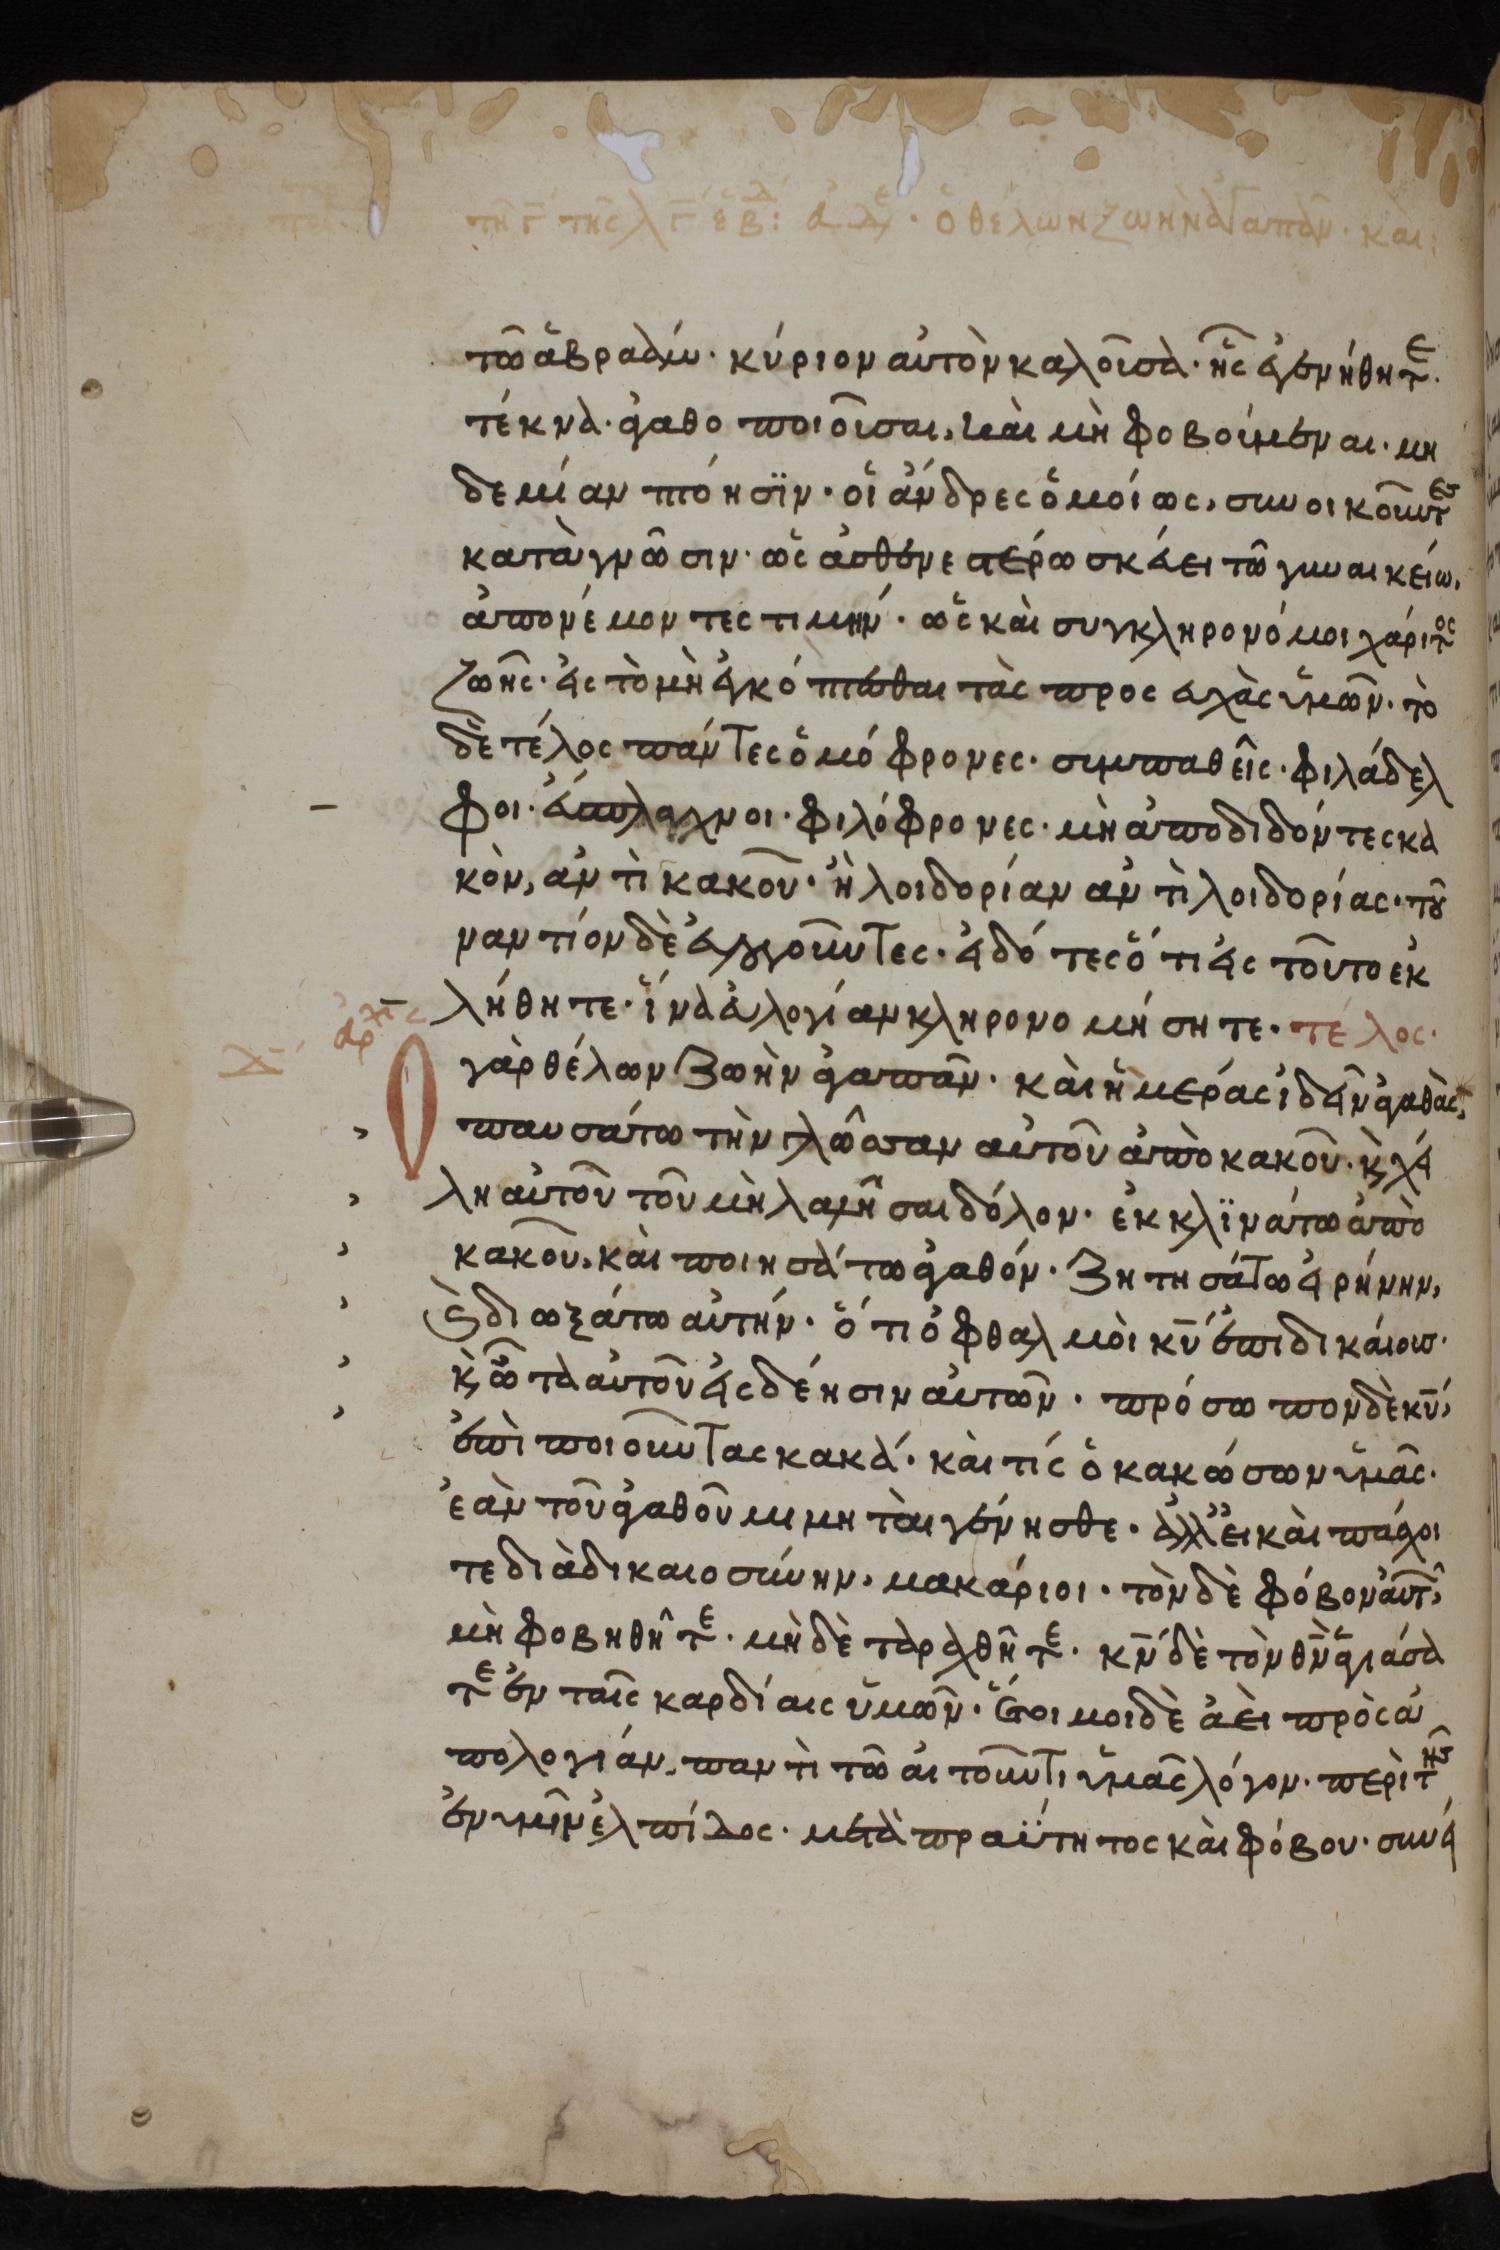 τῇ γ̅ τῆς λγ ἑβδ: ἀδε · ὁ θέλων ζωὴν ἀγαπᾶν · καὶ:
τῶ ἁβραὰμ · κύριον αὐτὸν καλοῦσα · ἧς ἐγενήθητε ·
τέκνα · ἀγαθοποιοῦσαι, καὶ μὴ φοβούμεναι · μη
δεμίαν πτόησϊν · οἱ ἄνδρες ὁμοίως, συνοικοῦντες
κατὰ γνῶσιν · ὡς ἀσθενεστέρω σκεύει τῶ γυναικείω,
ἀπονέμοντες τιμήν · ὡς καὶ συγκληρονόμοι χάριτος
ζωῆς · εἰς τὸ μὴ ἐγκόπτεσθαι τὰς προσευχὰς ὑμῶν · τὸ
δὲ τέλος πάντες ὁμόφρονες · συμπαθεῖς · φιλάδελ
φοι · εὔσπλαγχνοι · φιλόφρονες · μὴ ἀποδιδόντες κα
κὸν, ἀντὶ κακοῦ · ἢ λοιδορίαν ἀντὶ λοιδορίας · τοὐ
ναντίον δὲ εὐλογοῦντες · εἰδότες ὅτι εἰς τοῦτο ἐκ
λήθητε · ἵνα εὐλογίαν κληρονομήσητε · τέλος ·
ἀρχ
Ο γὰρ θέλων ζωὴν ἀγαπᾶν · καὶ ἡμέρας ἰδεῖν ἀγαθὰς,
παυσάτω τὴν γλῶσσαν αὐτοῦ ἀπὸ κακοῦ · κ χεί
λη αὐτοῦ τοῦ μὴ λαλῆσαι δόλον · ἐκκλϊνάτω ἀπὸ
κακοῦ, καὶ ποιησάτω ἀγαθόν · ζητησάτω εἰρήνην,
κ διωξάτω αὐτήν · ὅτι ὀφθαλμοὶ κυ̅ ἐπὶ δικαίους ·
κ ὦτα αὐτοῦ εἰς δέησιν αὐτῶν · πρόσωπον δὲ κυ̅,
ἐπὶ ποιοῦντας κακά · καὶ τίς ὁ κακώσων ὑμᾶς ·
ἐὰν τοῦ ἀγαθοῦ μιμηταὶ γένησθε · ἀλλ' εἰ καὶ πάσχοι
τε διὰ δικαιοσύνην, μακάριοι · τὸν δὲ φόβον αὐτῶν,
μὴ φοβηθῆτε · μὴ δὲ ταραχθῆτε · κν̅ δὲ τὸν θν̅ ἁγιάσα
τε ἐν ταῖς καρδίαις ὑμῶν · ἕτοιμοι δὲ ἀεὶ πρὸς ἀ
πολογίαν, παντὶ τῶ αἰτοῦντι ὑμᾶς λόγον · περὶ τῆς
ἐν ὑμῖν ἐλπίδος · μετὰ πραΰτητος καὶ φόβου · συνεί